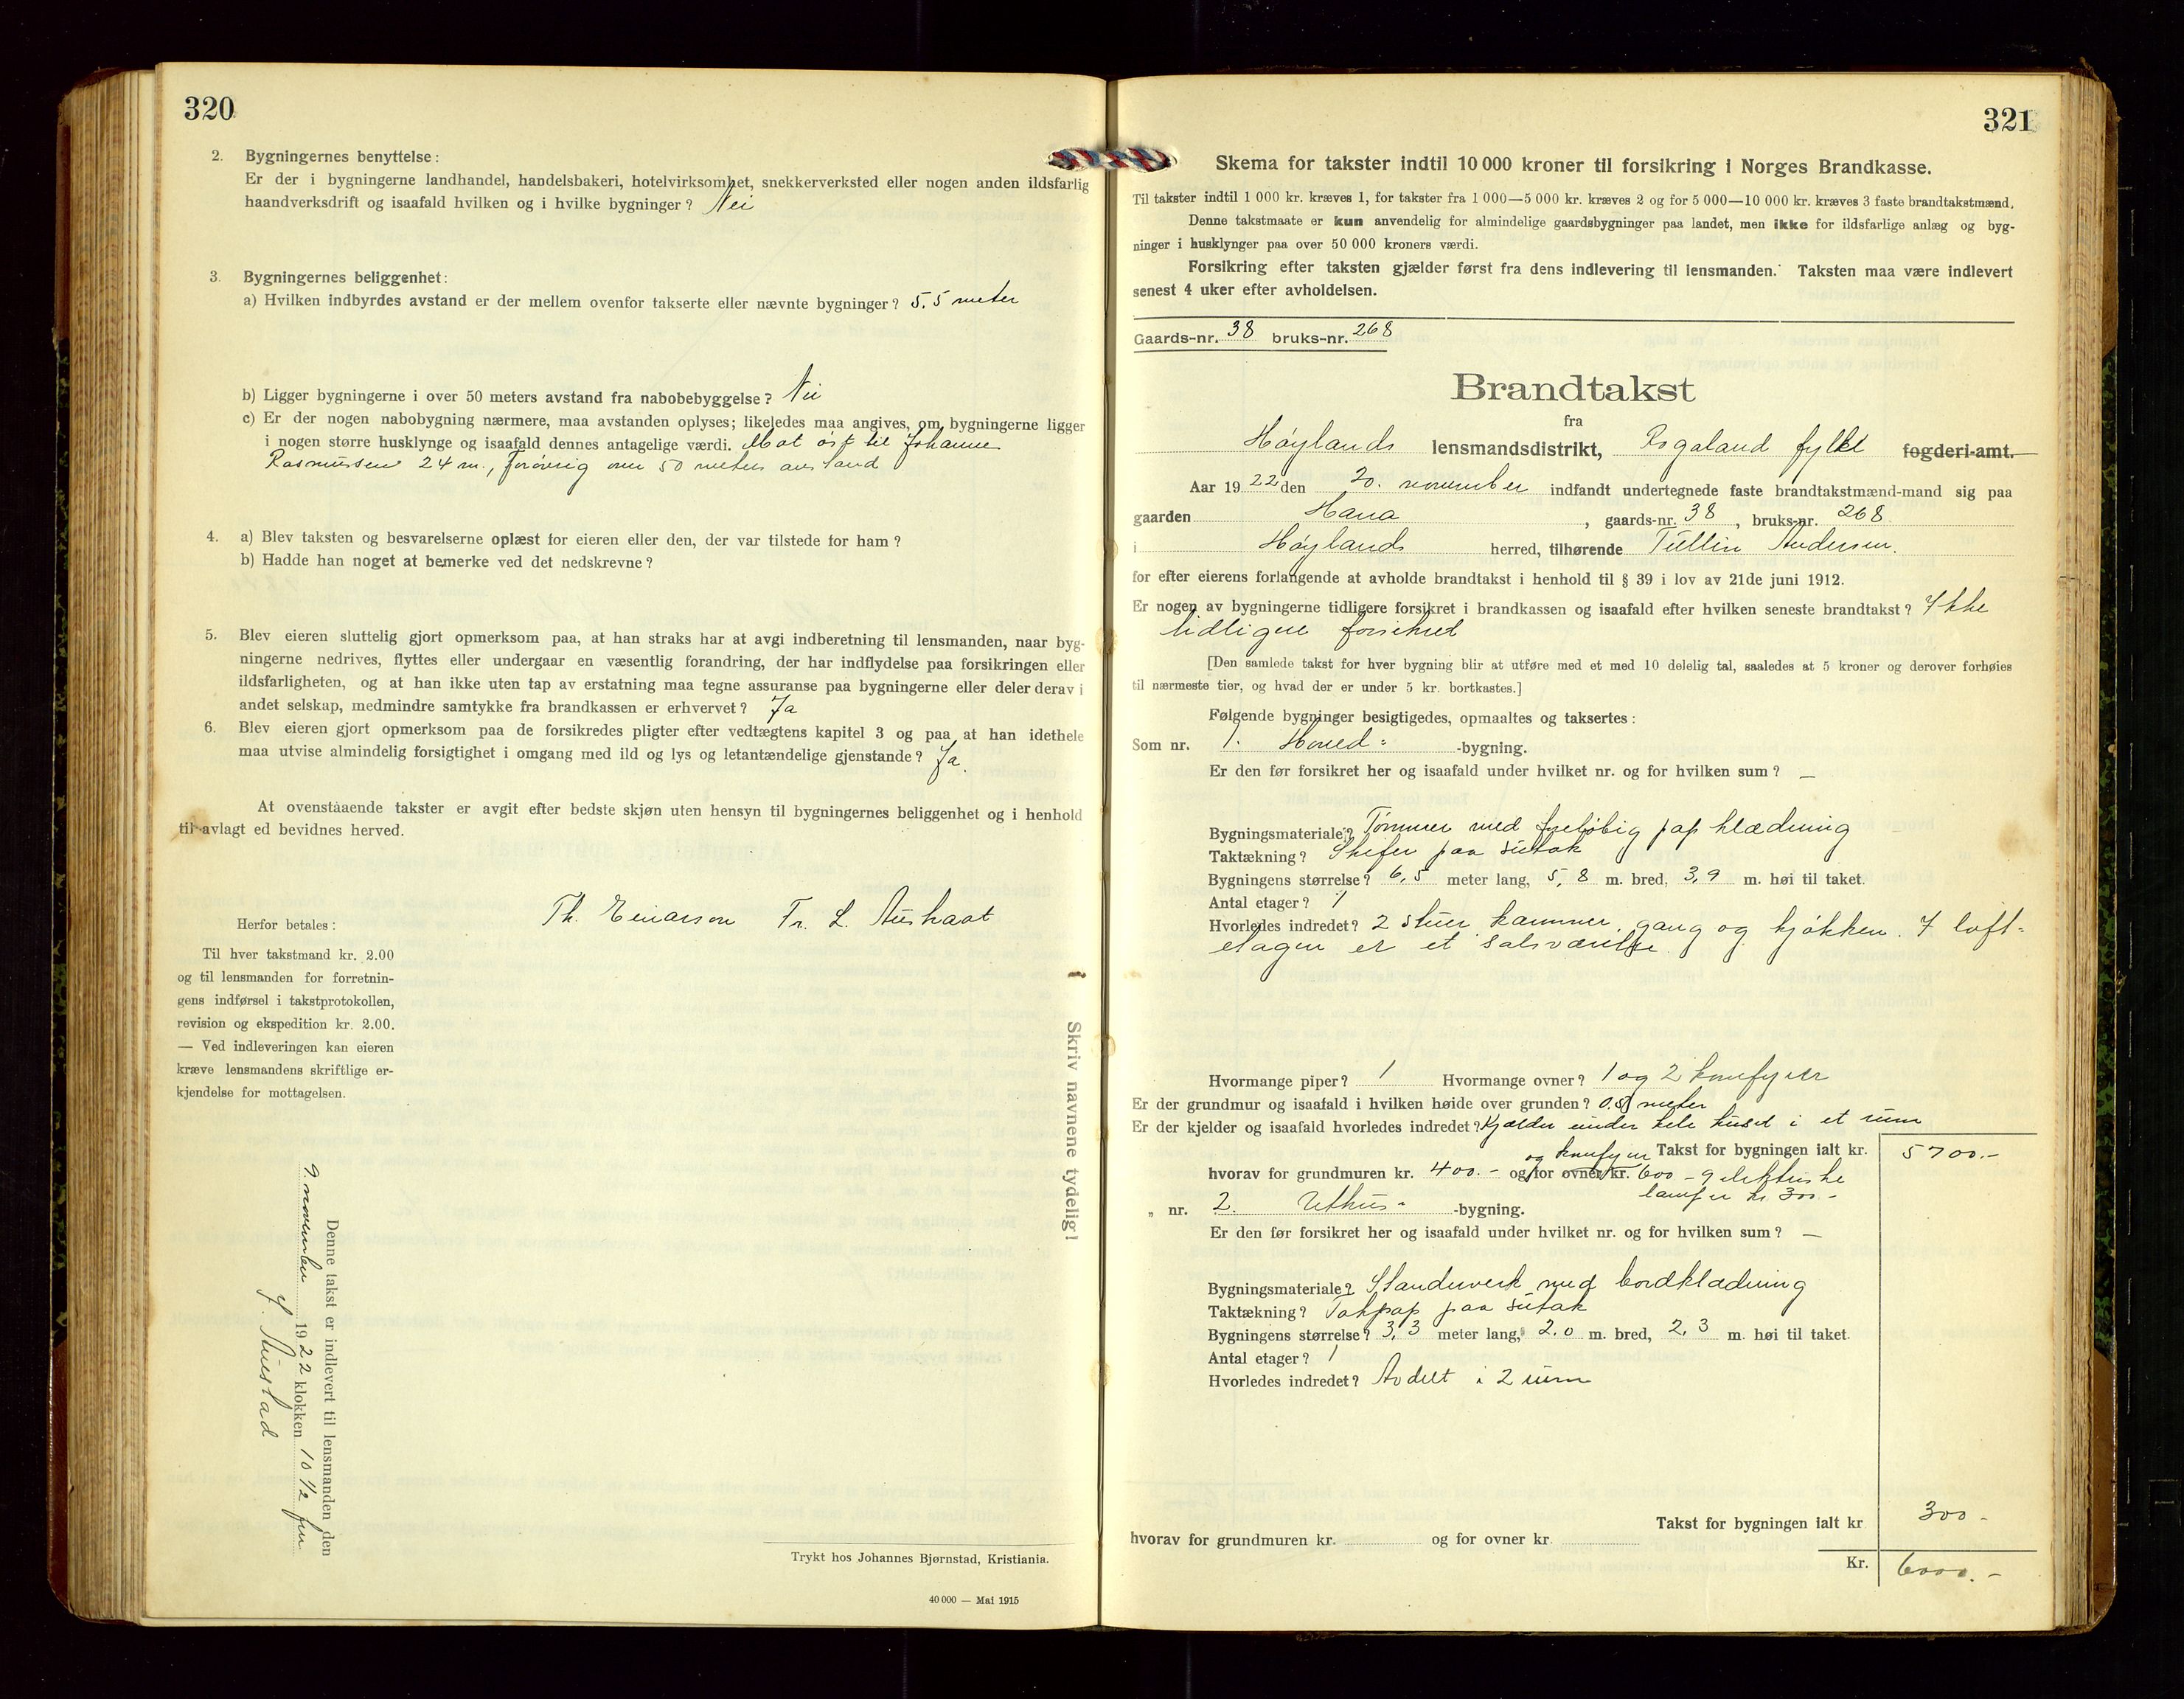 320
2. Bygningernes benyttelse:
Er der i bygningerne landhandel, handelsbakeri, hotelvirksomhet, snekkerverksted eller nogen anden ildsfarlig
haandverksdrift og isaafald hvilken og i hvilke bygninger? Nei
3. Bygningernes beliggenhet:
a) Hvilken indbyrdes avstand er der mellem ovenfor takserte eller nævnte bygninger? 5,5 meter
b) Ligger bygningerne i over 50 meters avstand fra nabobebyggelse? Nei
c) Er der nogen nabobygning nærmere, maa avstanden oplyses; likeledes maa angives, om bygningerne ligger
i nogen større husklynge og isaafald dennes antagelige værdi. Mot øst til Johanne
Rasmussen 24 m., forøvrig over 50 meters avstand
4. a) Blev taksten og besvarelserne oplæst for eieren eller den, der var tilstede for ham?
b) Hadde han noget at bemerke ved det nedskrevne?
5. Blev eieren sluttelig gjort opmerksom paa, at han straks har at avgi indberetning til lensmanden, naar byg-
ningerne nedrives, flyttes eller undergaar en væsentlig forandring, der har indflydelse paa forsikringen eller
ildsfarligheten, og at han ikke uten tap av erstatning maa tegne assuranse paa bygningerne eller deler derav i
andet selskap, medmindre samtykke fra brandkassen er erhvervet? Ja
6. Blev eieren gjort opmerksom paa de forsikredes pligter efter vedtægtens kapitel 3 og paa at han idethele
maa utvise almindelig forsigtighet i omgang med ild og lys og letantændelige gjenstande? Ja.
At ovenstaaende takster er avgit efter bedste skjøn uten hensyn til bygningernes beliggenhet og i henhold
til avlagt ed bevidnes herved.
Th. Einarson Fr. L. Aushaat
Herfor betales:
Til hver takstmand kr. 2.00
og til lensmanden for forretnin-
gens indførsel i takstprotokollen,
revision og ekspedition kr. 2.00.
— Ved indleveringen kan eieren
kræve lensmandens skriftlige er-
kjendelse for mottagelsen.
Skriv navnene tydelig!
Denne takst er indlevert til lensmanden den
9. november 1922 klokken 10 1/2 fm
Trykt hos Johannes Bjørnstad, Kristiania.
40 000 — Mai 1915
321
Skema for takster indtil 10 000 kroner til forsikring i Norges Brandkasse.
Til takster indtil 1 000 kr. kræves 1, for takster fra 1 000—5 000 kr. kræves 2 og for 5 000—10 000 kr. kræves 3 faste brandtakstmænd.
Denne takstmaate er kun anvendelig for almindelige gaardsbygninger paa landet, men ikke for ildsfarlige anlæg og byg-
ninger i husklynger paa over 50 000 kroners værdi.
Forsikring efter taksten gjælder først fra dens indlevering til lensmanden. Taksten maa være indlevert
senest 4 uker efter avholdelsen.
Gaards-nr. 38 bruks-nr. 268
Brandtakst
fra
Høylands lensmandsdistrikt, Rogaland fylke fogderi-amt.
Aar 1922 den 20. november indfandt undertegnede faste brandtakstmænd-mand sig paa
gaarden Hana, gaards-nr. 38, bruks-nr. 268
i Høylands herred, tilhørende Tullin Andersen.
for efter eierens forlangende at avholde brandtakst i henhold til § 39 i lov av 21de juni 1912.
Er nogen av bygningerne tidligere forsikret i brandkassen og isaafald efter hvilken seneste brandtakst? Ikke
tidligere forsikret
[Den samlede takst for hver bygning blir at utføre med et med 10 delelig tal, saaledes at 5 kroner og derover forhøies
til nærmeste tier, og hvad der er under 5 kr. bortkastes.]
Følgende bygninger besigtigedes, opmaaltes og taksertes:
Som nr. 1. Hoved-bygning.
Er den før forsikret her og isaafald under hvilket nr. og for hvilken sum? —
Bygningsmateriale? Tømmer med foreløbig pap klædning
Taktækning? Skifer paa sutak
Bygningens størrelse? 6,5 meter lang, 5,8 m. bred, 3,9 m. høi til taket.
Antal etager? 1
Hvorledes indredet? 2 stuer kammer, gang og kjøkken. I loft-
etagen er et salsværelse
Hvormange piper? 1 Hvormange ovner? 1 og 2 komfyrer
Er der grundmur og isaafald i hvilken høide over grunden? 0.5 meter
Er der kjelder og isaafald hvorledes indredet? Kjælder under hele huset i et rum
Takst for bygningen ialt kr. 5700.-
hvorav for grundmuren kr. 400.- og for ovner og komfyrer kr. 600 - 9 elektriske
lamper kr 300.-
„ nr. 2. Uthus-bygning.
Er den før forsikret her og isaafald under hvilket nr. og for hvilken sum? —
Bygningsmateriale? Standerverk med bordklædning
Taktækning? Takpap paa sutak
Bygningens størrelse? 3,3 meter lang, 2.0 m. bred, 2,3 m. høi til taket.
Antal etager? 1
Hvorledes indredet? Avdelt i 2 rum
Takst for bygningen ialt kr. 300-
hvorav for grundmuren kr. og for ovner kr.
Kr. 6000.-